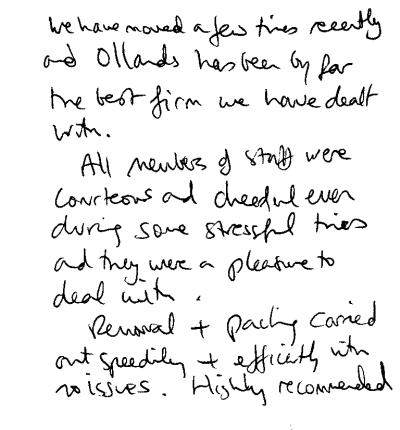 We have moved a few times recently
and Ollands has been by far
the best firm we have dealt
with.
All members of staff were
courteous and cheerful even
during some stressful times
and they were a pleasure to
deal with.
Removal + packing carried
out speedily + efficiently with
no issues. Highly recommended